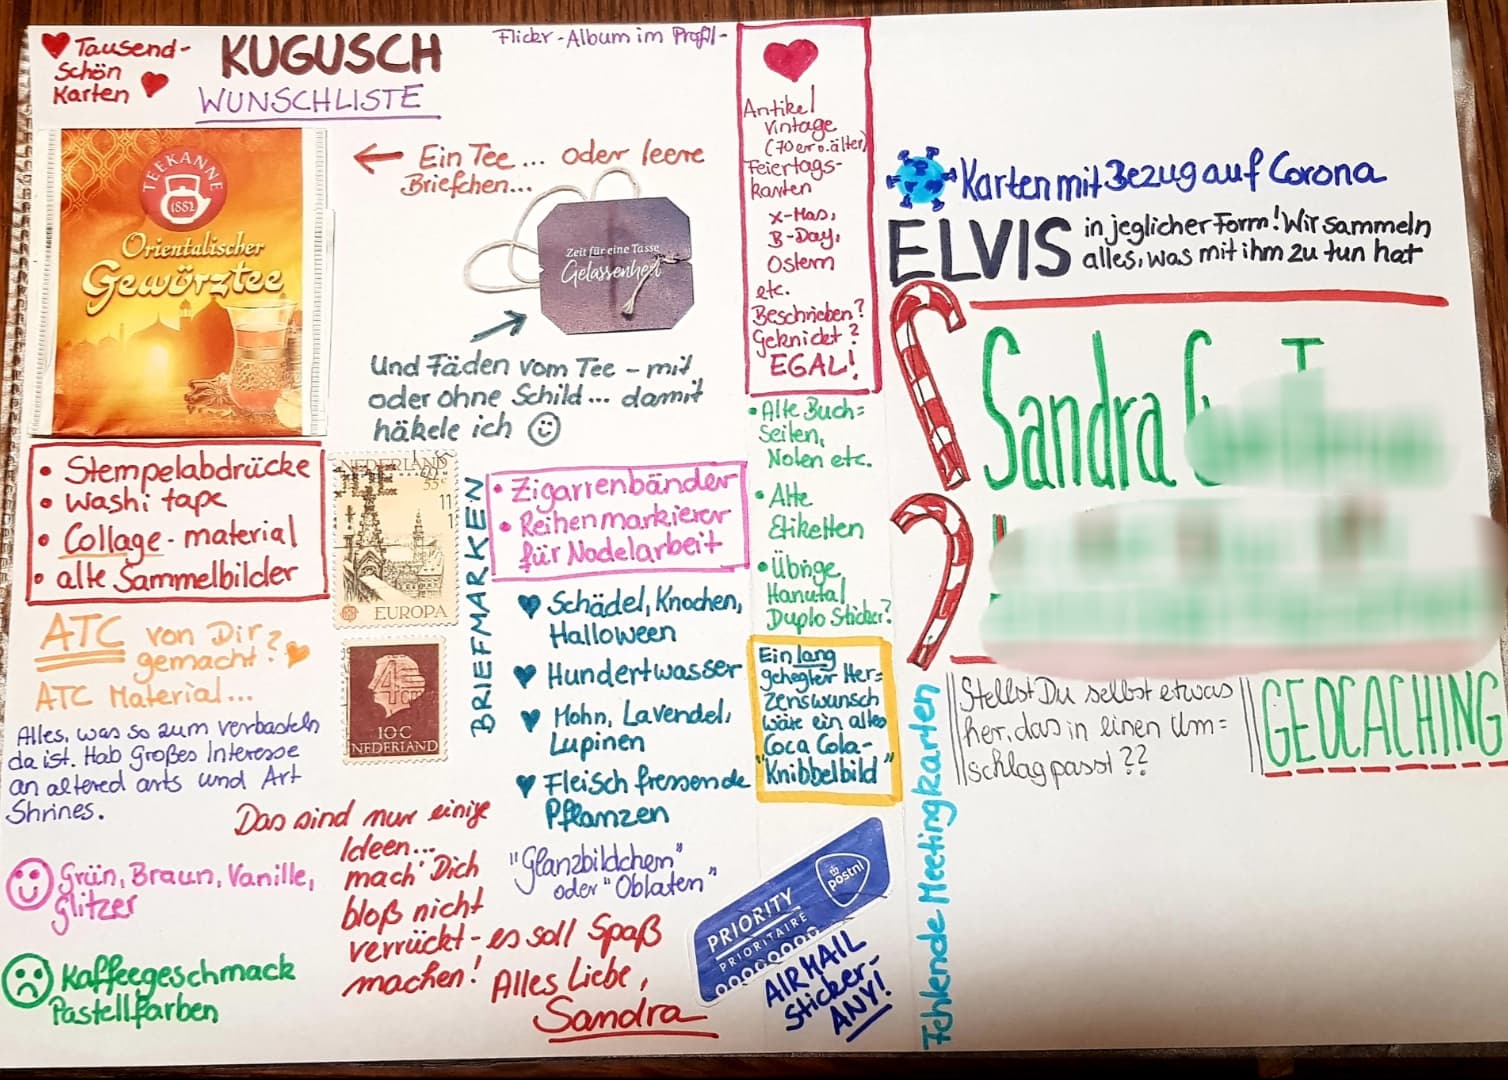 Tausend-
Schön
Karten
KUGUSCH
WUNSCHLISTE
Flickr-Album im Profil-
TEEKANNE
1882
Orientalischer
Gewürztee
Ein Tee... oder leere
Briefchen...
Zeit für eine Tasse
Gelassenheit
Und Fäden vom Tee - mit
oder ohne Schild... damit
häkele ich
• Stempelabdrücke
• Washi tape
• Collage-material
• alte Sammelbilder
NEDERLAND
55c
EUROPA
4c
10C
NEDERLAND
BRIEFMARKEN
• Zigarrenbänder
• Reihenmarkierer
für Nadelarbeit
Schädel, Knochen,
Halloween
Hundertwasser
Mohn, Lavendel,
Lupinen
Fleisch fressende
Pflanzen
"Glanzbildchen"
oder "Oblaten"
ATC von Dir
gemacht?
ATC Material...
Alles, was so zum verbasteln
da ist. Hab Großes Interesse
an altered arts und Art
Shrines.
Grün, Braun, Vanille,
Glitzer
Kaffeegeschmack
Pastellfarben
Das sind nur einige
Ideen...
mach' Dich
bloß nicht
verrückt - es soll Spaß
machen! Alles Liebe,
Sandra
Antikel
Vintage
(70er o. älter)
Feiertags-
karten
X-Mas,
B-Day,
Ostern
etc.
Beschrieben?
Geknickt?
EGAL!
• Alte Buch=
seiten,
Noten etc.
• Alte
Etiketten
• Übrige
Hanuta/
Duplo Sticker?
Ein lang
gehegter Her=
zenswunsch
wäre ein altes
Coca Cola-
"Knibbelbild"
PRIORITY
PRIORITAIRE
postnl
AIRMAIL
Sticker-
ANY!
Karten mit Bezug auf Corona
ELVIS in jeglicher Form! Wir sammeln
alles, was mit ihm zu tun hat
Sandra
Fehlende Meetingkarten
Stellst Du selbst etwas
her, das in einen Um=
schlag passt??
GEOCACHING